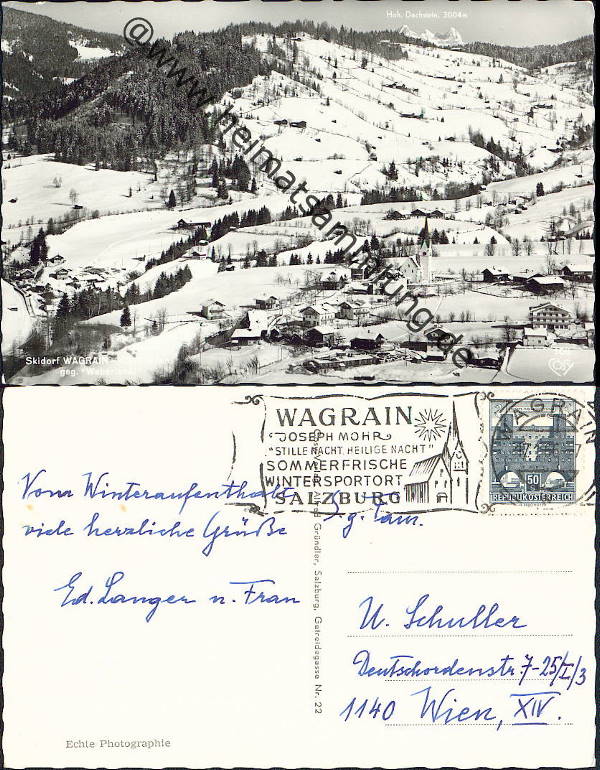 Hoh. Dachstein, 3004m
@www.heimatsammlung.de
Skidorf WAGRAIN
geg.
WAGRAIN
JOSEPH MOHR
"STILLE NACHT, HEILIGE NACHT"
SOMMERFRISCHE
WINTERSPORTORT
SALZBURG
WAGRAIN
50
REPUBLIK ÖSTERREICH
Vom Winteraufenthalt
viele herzliche Grüße
Ed. Langer u. Frau
Gründler, Salzburg, Getreidegasse Nr. 22
Fam.
U. Schuller
Deutschordenstr. 7-25/I/3
1140 Wien, XIV.
Echte Photographie